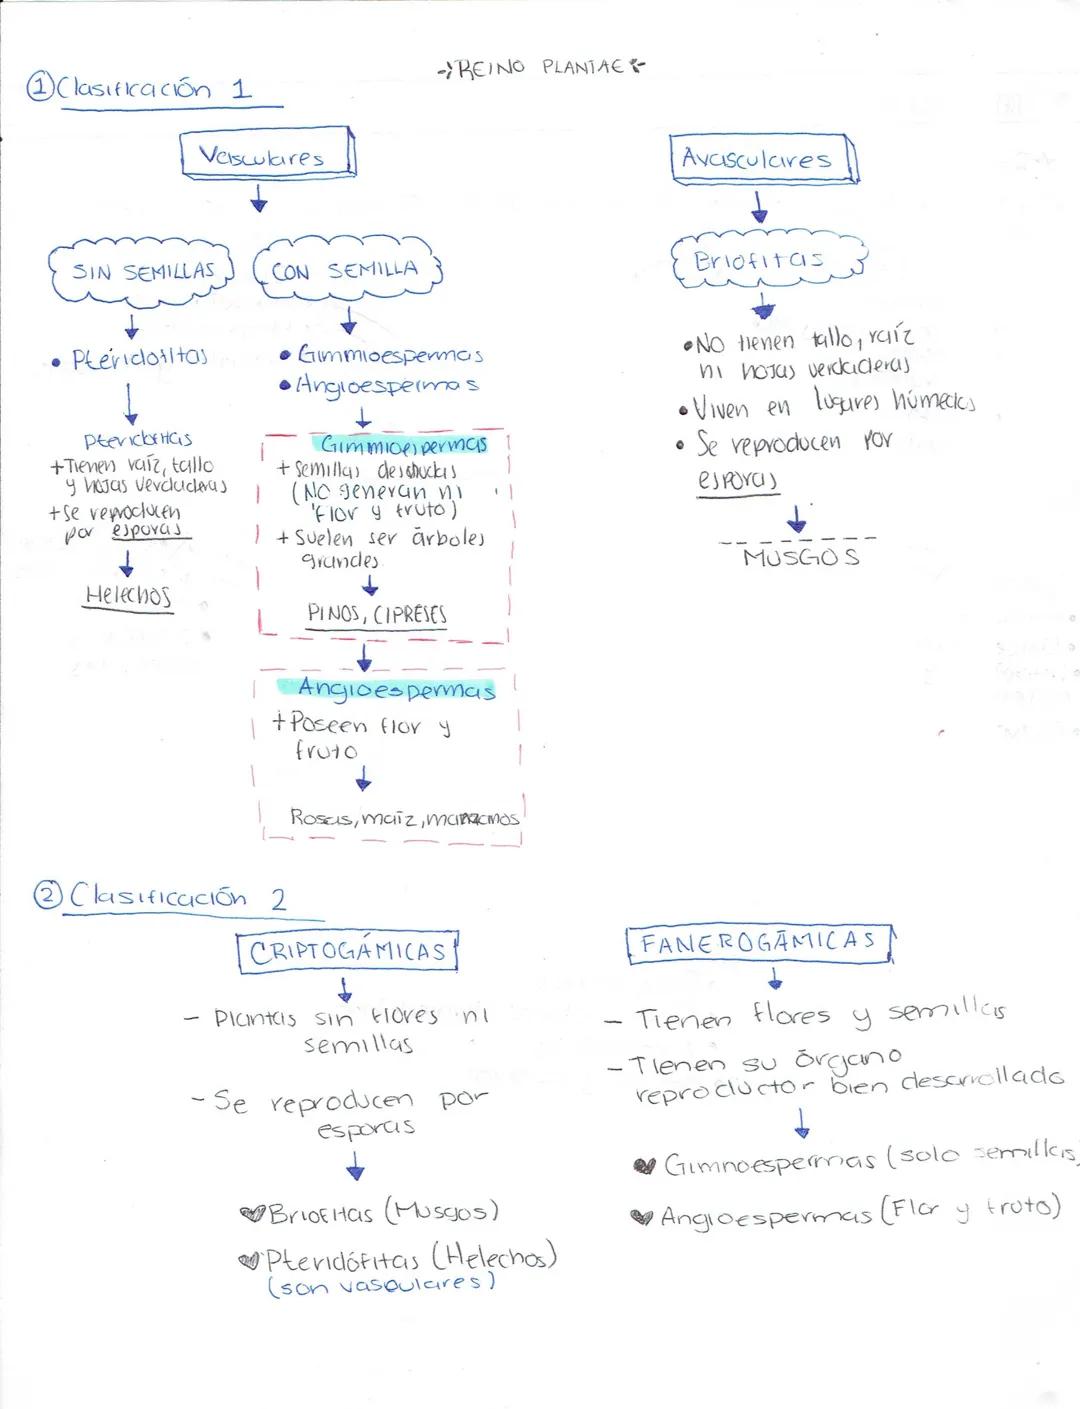 REINO PLANTAE
① Clasificación 1
Vasculares
SIN SEMILLAS
• Pteridofitas
Pteridofitas
+ Tienen raíz, tallo
y hojas verdaderas
+ Se reproducen
por esporas
Helechos
CON SEMILLA
• Gimmioespermas
• Angioespermas
Gimmioespermas
+ Semillas desnudas
(No generan ni
flor y fruto)
+ Suelen ser árboles
grandes
PINOS, CIPRESES
Angioespermas
+ Poseen flor y
fruto
Rosas, maíz, manzanos
Avasculares
Briofitas
• No tienen tallo, raíz
ni hojas verdaderas
• Viven en lugares húmedos
• Se reproducen por
esporas
MUSGOS
② Clasificación 2
CRIPTOGÁMICAS
- Plantas sin flores ni
semillas
- Se reproducen por
esporas
♥ Briofitas (Musgos)
♥ Pteridófitas (Helechos)
(son vasculares)
FANEROGÁMICAS
- Tienen flores y semillas
- Tienen su órgano
reproductor bien desarrollado
♥ Gimnoespermas (solo semillas)
♥ Angioespermas (Flor y fruto)